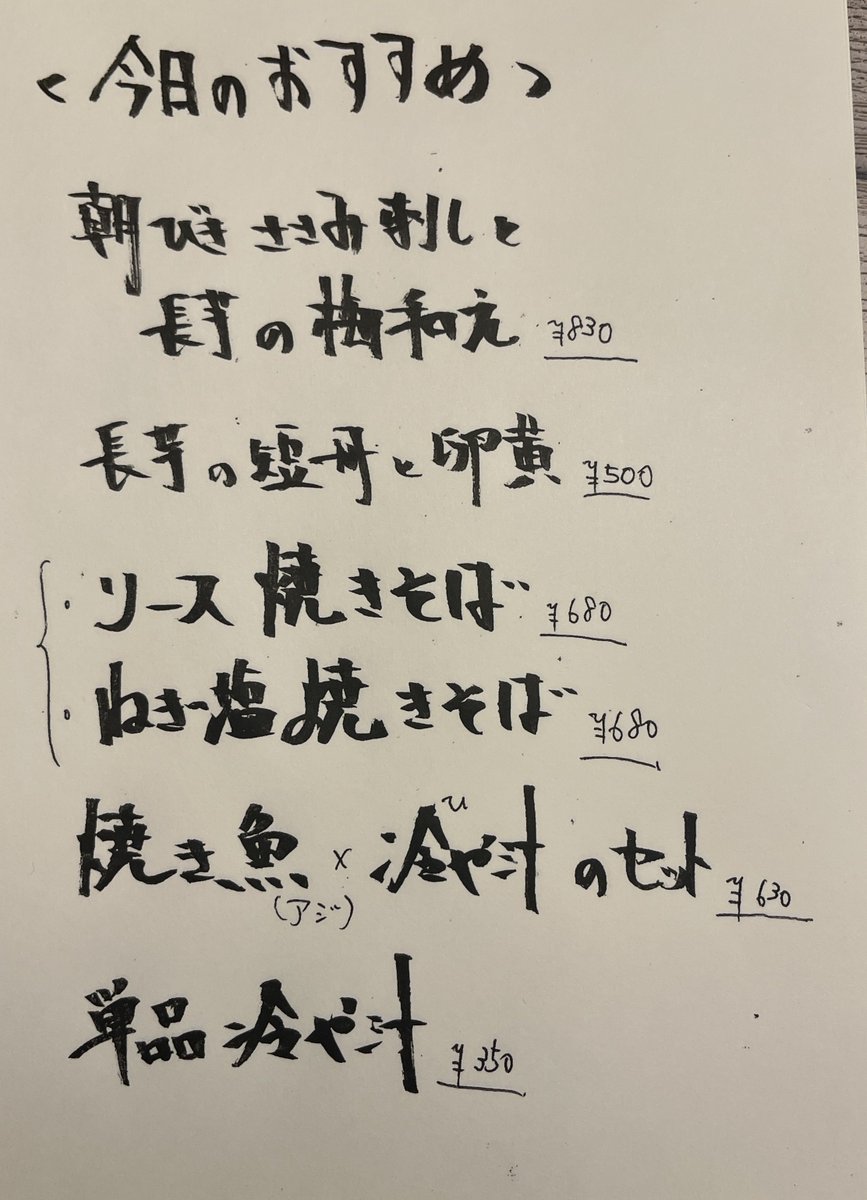 <今日のおすすめ>
朝びきささみ刺しと
長芋の梅和え ¥830
長芋の短冊と卵黄 ¥500
・ソース焼きそば ¥680
・ねぎ塩焼きそば ¥680
ひ
焼き魚×冷や汁のセット ¥630
(アジ)
単品冷や汁 ¥350